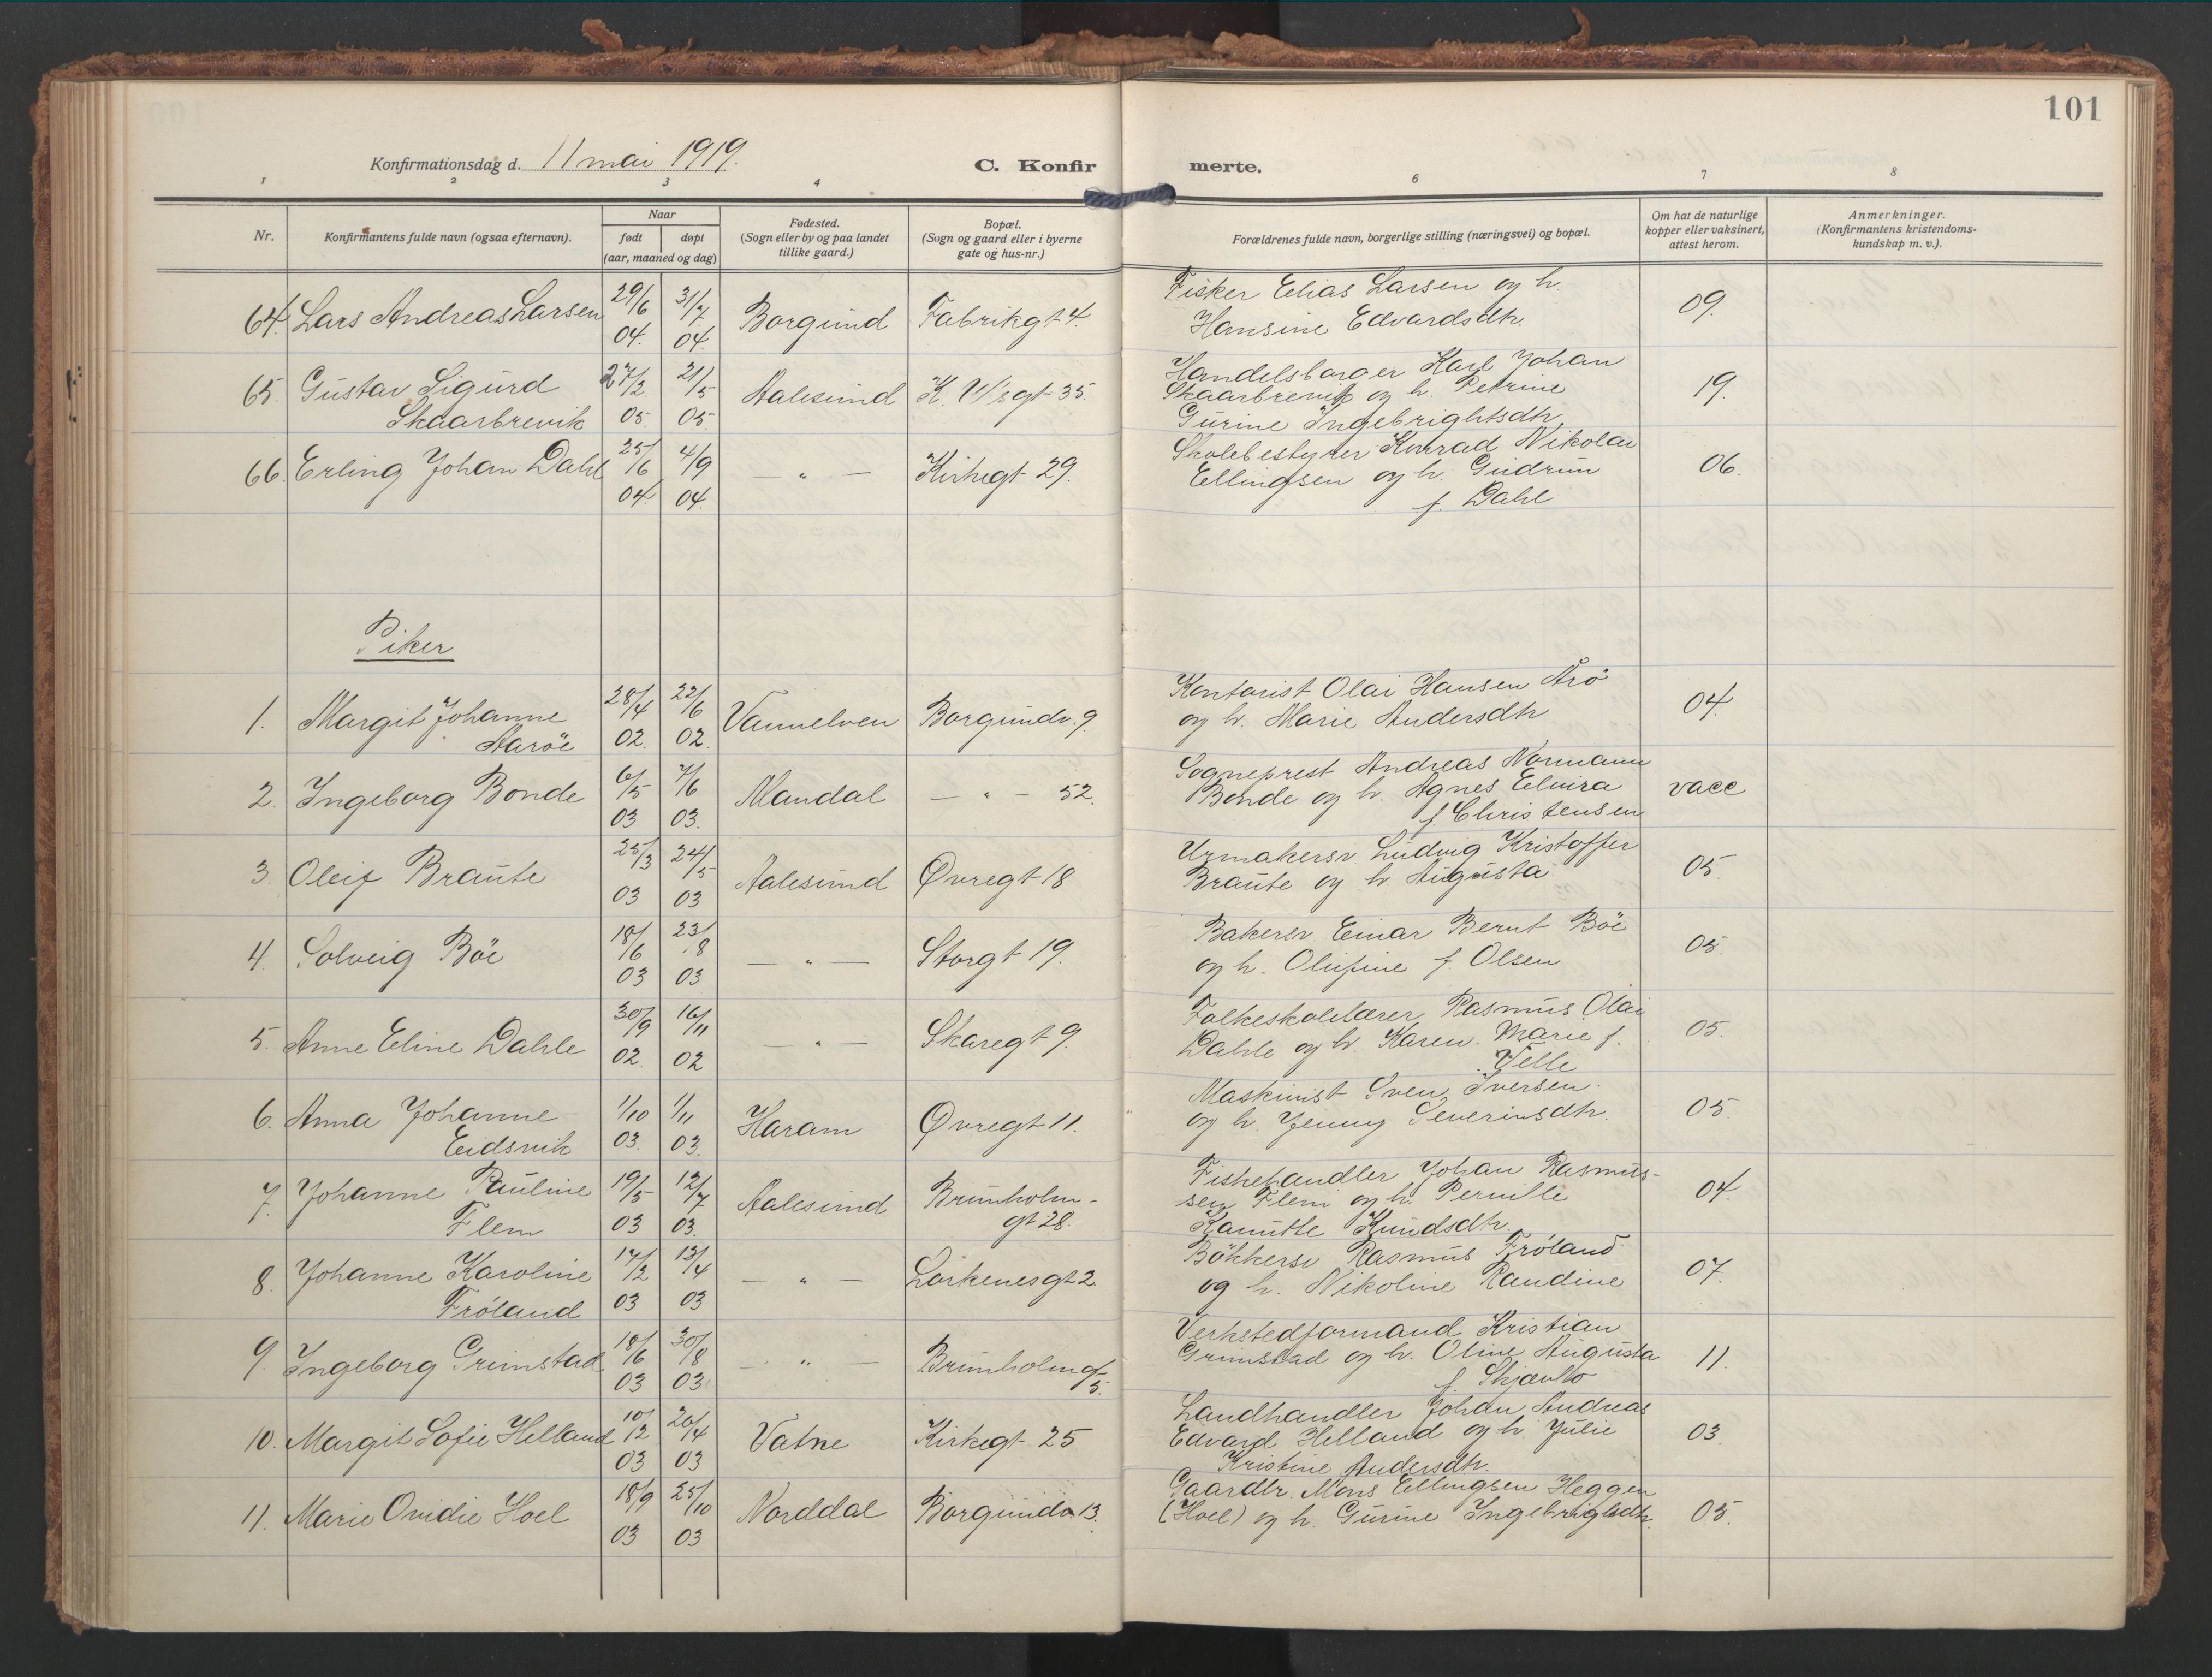 101
Konfirmationsdag d. 11 mai 1919.
C. Konfirmerte.
1 2 3 4 6 7 8
Nr.
Konfirmantens fulde navn (ogsaa efternavn).
Naar
født døpt
(aar, maaned og dag)
Fødested.
(Sogn eller by og paa landet
tillike gaard.)
Bopæl.
(Sogn og gaard eller i byerne
gate og hus-nr.)
Forældrenes fulde navn, borgerlige stilling (næringsvei) og bopæl.
Om hat de naturlige
kopper eller vaksinert,
attest herom.
Anmerkninger.
(Konfirmantens kristendoms-
kundskap m. v.).
29/6 31/7 Fisker Elias Larsen og h.
64. Lars Andreas Larsen Borgund Fabrikgt 4. Hansine Edvardsdtr. 09.
04. 04.
27/2 21/5 Handelsborger Karl Johan
65. Gustav Sigurd Aalesund K. W's gt 35. Skaarbrevik og h. Petrine 19.
Skaarbrevik 05. 05. Gurine Ingebrightsdtr.
25/6 4/9 Skolebestyrer Konrad Nikolai
66. Erling Johan Dahl — " — Kirkegt 29. Ellingsen og h. Gudrun 06.
04 04. f. Dahl
Piker
28/4 22/6 Kontorist Olai Hansen Årö
1. Margit Johanne Vannelven Borgundv. 9 og h. Marie Andersdtr 04.
Aaröe 02. 02.
6/5 7/6 Sogneprest Andreas Normann
2. Ingeborg Bonde Mandal — " — 52. Bonde og h. Agnes Elvira vacc
03 03. f. Christensen
25/3 24/5 Urmakersv. Ludvig Kristoffer
3. Oleif Braute Aalesund Øvregt 18 Braute og h. Augusta 05.
03 03
18/6 23/8 Bakersv. Einar Bernt Böe
4. Solveig Böe — " — Storgt 19. og h. Olufine f. Olsen 05.
03 03
30/9 16/11 Folkeskolelærer Rasmus Olai
5. Anne Eline Dahle — " — Skaregt 9. Dahle og h. Karen Marie f. 05.
02. 02 Velle
1/10 1/11 Maskinist Sven Iversen
6. Anna Johanne Haram Øvregt 11. og h. Jenny Severinsdtr. 05.
Eidsvik 03. 03.
19/5 12/7 Fiskehandler Johan Rasmus-
7. Johanne Pauline Aalesund Brunholm- sen Flem og h. Pernille 04.
Flem 03 03. gt 28. Kanutte Knudsdtr.
17/2 13/4 Bökkersv Rasmus Fröland
8. Johanne Karoline — " — Lorkenesgt 2 og h. Nikoline Raudine 07.
Fröland 03 03
18/6 30/8 Verkstedformand Kristian
9. Ingeborg Grimstad — " — Brunholmgt Grimstad og h. Oline Augusta 11.
03 03 5. f.
10/12 26/4 Landhandler Johan Andreas
10. Margit Sofie Helland Vatne Kirkegt 25 Edvard Helland og h. Julie 03.
03 03 Kristine Andersdtr.
18/9 25/10 Gaardbr. Mons Ellingsen Heggen
11. Marie Ovidie Hoel Norddal Borgundv 13. (Hoel) og h. Gurine Ingebrigtsdtr. 05.
03 03